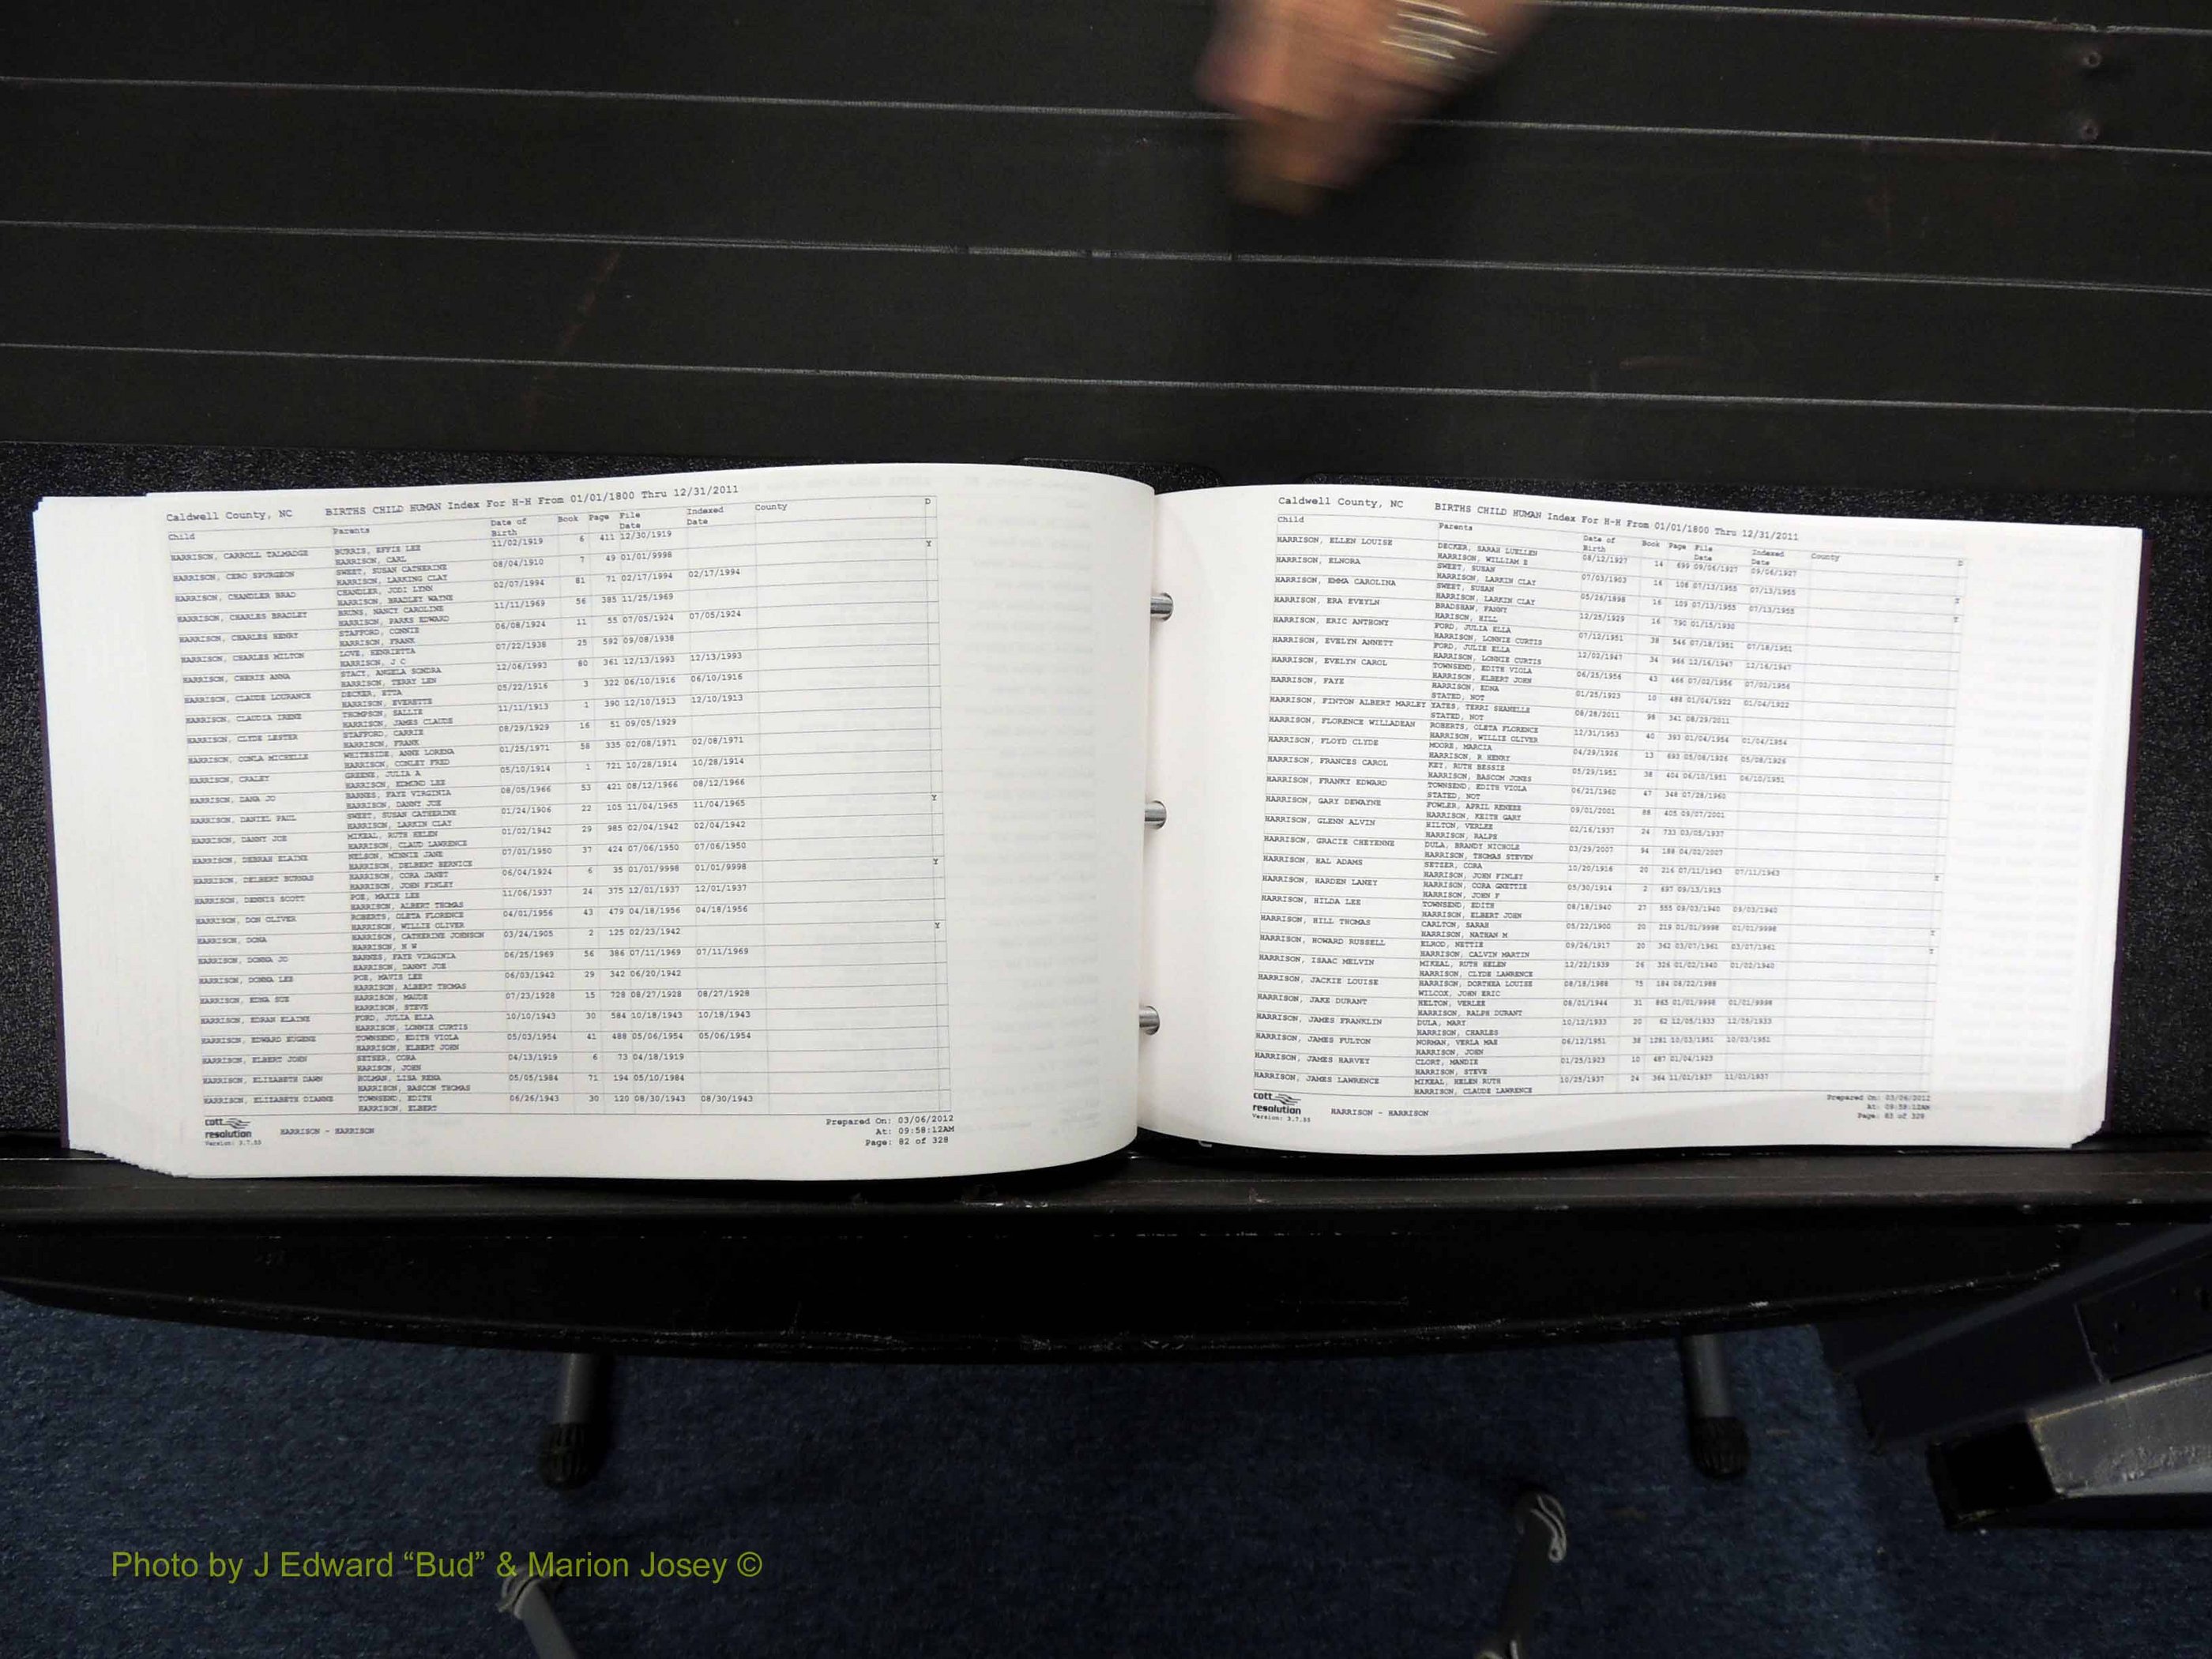 Caldwell County, NC BIRTHS CHILD HUMAN Index For H-H From 01/01/1800 Thru 12/31/2011
Child Parents Date of Birth Book Page File Date Indexed Date County D
HARRISON, CARROLL TALMADGE BURRIS, EFFIE LEE 11/02/1919 6 411 12/30/1919
HARRISON, CARL
HARRISON, CERO SPURGEON SWEET, SUSAN CATHERINE 08/04/1910 7 49 01/01/9998 Y
HARRISON, LARKING CLAY
HARRISON, CHANDLER BRAD CHANDLER, JODI LYNN 02/07/1994 81 71 02/17/1994 02/17/1994
HARRISON, BRADLEY WAYNE
HARRISON, CHARLES BRADLEY BRUNS, NANCY CAROLINE 11/11/1969 56 385 11/25/1969
HARRISON, PARKS EDWARD
HARRISON, CHARLES HENRY STAFFORD, CONNIE 06/08/1924 11 55 07/05/1924 07/05/1924
HARRISON, FRANK
HARRISON, CHARLES MILTON LOVE, HENRIETTA 07/22/1938 25 592 09/08/1938
HARRISON, J C
HARRISON, CHERIE ANNA STACY, ANGELA SONDRA 12/06/1993 80 361 12/13/1993 12/13/1993
HARRISON, TERRY LEN
HARRISON, CLAUDE LOURANCE DECKER, ETTA 05/22/1916 3 322 06/10/1916 06/10/1916
HARRISON, EVERETTE
HARRISON, CLAUDIA IRENE THOMPSON, SALLIE 11/11/1913 1 390 12/10/1913 12/10/1913
HARRISON, JAMES CLAUDE
HARRISON, CLYDE LESTER STAFFORD, CARRIE 08/29/1929 16 51 09/05/1929
HARRISON, FRANK
HARRISON, CONLA MICHELLE WHITESIDE, ANNE LORENA 01/25/1971 58 335 02/08/1971 02/08/1971
HARRISON, CONLEY FRED
HARRISON, CRALEY GREENE, JULIA A 05/10/1914 1 721 10/28/1914 10/28/1914
HARRISON, EDMUND LEE
HARRISON, DANA JO BARNES, FAYE VIRGINIA 08/05/1966 53 421 08/12/1966 08/12/1966
HARRISON, DANNY JOE
HARRISON, DANIEL PAUL SWEET, SUSAN CATHERINE 01/24/1906 22 105 11/04/1965 11/04/1965 Y
HARRISON, LARKIN CLAY
HARRISON, DANNY JOE MIKEAL, RUTH HELEN 01/02/1942 29 985 02/04/1942 02/04/1942
HARRISON, CLAUD LAWRENCE
HARRISON, DEBRAH ELAINE NELSON, MINNIE JANE 07/01/1950 37 424 07/06/1950 07/06/1950
HARRISON, DELBERT BERNICE
HARRISON, DELBERT BURNAS HARRISON, CORA JANET 06/04/1924 6 35 01/01/9998 01/01/9998 Y
HARRISON, JOHN FINLEY
HARRISON, DENNIS SCOTT POE, MAXIE LEE 11/06/1937 24 375 12/01/1937 12/01/1937
HARRISON, ALBERT THOMAS
HARRISON, DON OLIVER ROBERTS, OLETA FLORENCE 04/01/1956 43 479 04/18/1956 04/18/1956
HARRISON, WILLIE OLIVER
HARRISON, DONA HARRISON, CATHERINE JOHNSON 03/24/1905 2 125 02/23/1942 Y
HARRISON, N W
HARRISON, DONNA JO BARNES, FAYE VIRGINIA 06/25/1969 56 386 07/11/1969 07/11/1969
HARRISON, DANNY JOE
HARRISON, DONNA LEE POE, MAVIS LEE 06/03/1942 29 342 06/20/1942
HARRISON, ALBERT THOMAS
HARRISON, EDNA SUE HARRISON, MAUDE 07/23/1928 15 728 08/27/1928 08/27/1928
HARRISON, STEVE
HARRISON, EDRAN ELAINE FORD, JULIA ELLA 10/10/1943 30 584 10/18/1943 10/18/1943
HARRISON, LONNIE CURTIS
HARRISON, EDWARD EUGENE TOWNSEND, EDITH VIOLA 05/03/1954 41 488 05/06/1954 05/06/1954
HARRISON, ELBERT JOHN
HARRISON, ELBERT JOHN SETSER, CORA 04/13/1919 6 73 04/18/1919
HARISON, JOHN
HARRISON, ELIZABETH DAWN HOLMAN, LISA RENA 05/05/1984 71 194 05/10/1984
HARRISON, BASCON THOMAS
HARRISON, ELIZABETH DIANNE TOWNSEND, EDITH 06/26/1943 30 120 08/30/1943 08/30/1943
HARRISON, ELBERT
cott
resolution HARRISON - HARRISON
Version: 3.7.53
Prepared On: 03/06/2012
At: 09:58:12AM
Page: 82 of 328
Caldwell County, NC BIRTHS CHILD HUMAN Index For H-H From 01/01/1800 Thru 12/31/2011
Child Parents Date of Birth Book Page File Date Indexed Date County D
HARRISON, ELLEN LOUISE DECKER, SARAH LUELLEN 08/12/1927 14 699 09/06/1927 09/06/1927
HARRISON, WILLIAM E
HARRISON, ELNORA SWEET, SUSAN 07/03/1903 16 108 07/13/1955 07/13/1955 Y
HARRISON, LARKIN CLAY
HARRISON, EMMA CAROLINA SWEET, SUSAN 05/26/1898 16 109 07/13/1955 07/13/1955 Y
HARRISON, LARKIN CLAY
HARRISON, ERA EVEYLN BRADSHAW, FANNY 12/25/1929 16 790 01/15/1930
HARISON, HILL
HARRISON, ERIC ANTHONY FORD, JULIA ELLA 07/12/1951 38 546 07/18/1951 07/18/1951
HARRISON, LONNIE CURTIS
HARRISON, EVELYN ANNETT FORD, JULIE ELLA 12/02/1947 34 966 12/16/1947 12/16/1947
HARRISON, LONNIE CURTIS
HARRISON, EVELYN CAROL TOWNSEND, EDITH VIOLA 06/25/1956 43 466 07/02/1956 07/02/1956
HARRISON, ELBERT JOHN
HARRISON, FAYE HARRISON, EDNA 01/25/1923 10 488 01/04/1922 01/04/1922
STATED, NOT
HARRISON, FINTON ALBERT MARLEY YATES, TERRI SHANELLE 08/28/2011 98 341 08/29/2011
STATED, NOT
HARRISON, FLORENCE WILLADEAN ROBERTS, OLETA FLORENCE 12/31/1953 40 393 01/04/1954 01/04/1954
HARRISON, WILLIE OLIVER
HARRISON, FLOYD CLYDE MOORE, MARCIA 04/29/1926 13 693 05/08/1926 05/08/1926
HARRISON, R HENRY
HARRISON, FRANCES CAROL KEY, RUTH BESSIE 05/29/1951 38 404 06/10/1951 06/10/1951
HARRISON, BASCOM JONES
HARRISON, FRANKY EDWARD TOWNSEND, EDITH VIOLA 06/21/1960 47 348 07/28/1960
STATED, NOT
HARRISON, GARY DEWAYNE FOWLER, APRIL RENEEE 09/01/2001 88 405 09/07/2001
HARRISON, KEITH GARY
HARRISON, GLENN ALVIN HILTON, VERLEE 02/16/1937 24 733 03/05/1937
HARRISON, RALPH
HARRISON, GRACIE CHEYENNE DULA, BRANDY NICHOLE 03/29/2007 94 188 04/02/2007
HARRISON, THOMAS STEVEN
HARRISON, HAL ADAMS SETZER, CORA 10/20/1916 20 216 07/11/1963 07/11/1963 Y
HARRISON, JOHN FINLEY
HARRISON, HARDEN LANEY HARRISON, CORA GNETTIE 05/30/1914 2 697 09/13/1915
HARRISON, JOHN F
HARRISON, HILDA LEE TOWNSEND, EDITH 08/18/1940 27 555 09/03/1940 09/03/1940
HARRISON, ELBERT JOHN
HARRISON, HILL THOMAS CARLTON, SARAH 05/22/1900 20 219 01/01/9998 01/01/9998 Y
HARRISON, NATHAN M
HARRISON, HOWARD RUSSELL ELROD, NETTIE 09/26/1917 20 362 03/07/1961 03/07/1961 Y
HARRISON, CALVIN MARTIN
HARRISON, ISAAC MELVIN MIKEAL, RUTH HELEN 12/22/1939 26 326 01/02/1940 01/02/1940
HARRISON, CLYDE LAWRENCE
HARRISON, JACKIE LOUISE HARRISON, DORTHEA LOUISE 08/18/1988 75 184 08/22/1988
WILCOX, JOHN ERIC
HARRISON, JAKE DURANT HELTON, VERLEE 08/01/1944 31 865 01/01/9998 01/01/9998
HARRISON, RALPH DURANT
HARRISON, JAMES FRANKLIN DULA, MARY 10/12/1933 20 62 12/05/1933 12/05/1933
HARRISON, CHARLES
HARRISON, JAMES FULTON NORMAN, VERLA MAE 06/12/1951 38 1281 10/03/1951 10/03/1951
HARRISON, JOHN
HARRISON, JAMES HARVEY CLORT, MANDIE 01/25/1923 10 487 01/04/1923
HARRISON, STEVE
HARRISON, JAMES LAWRENCE MIKEAL, HELEN RUTH 10/25/1937 24 364 11/01/1937 11/01/1937
HARRISON, CLAUDE LAWRENCE
cott
resolution HARRISON - HARRISON
Version: 3.7.53
Prepared On: 03/06/2012
At: 09:58:12AM
Page: 83 of 328
Photo by J Edward “Bud” & Marion Josey ©